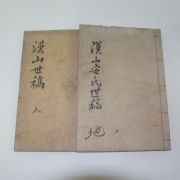 漢山安氏世稿
地
漢山世稿
人